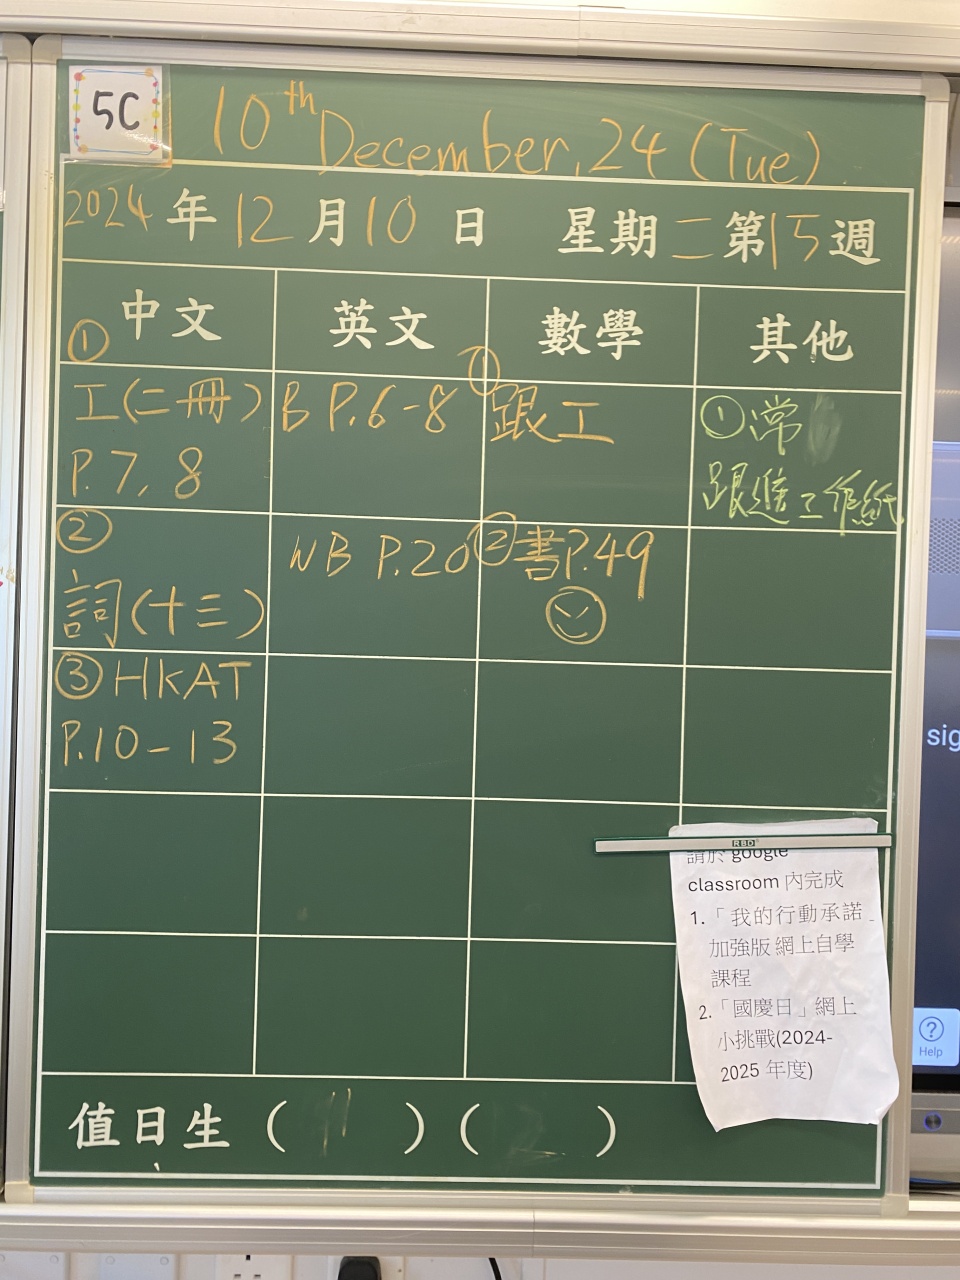 5C
10th December, 24 (Tue)
2024年12月10日 星期二第15週
中文 英文 數學 其他
①
工(二冊)
P.7, 8
②
詞(十三)
③HKAT
P.10-13
B P.6-8
WB P.20
①
跟工
②書P.49
①常
跟進工作紙
RBD
請於 google
classroom 內完成
1.「我的行動承諾
加強版 網上自學
課程
2.「國慶日」網上
小挑戰(2024-
2025 年度)
值日生 ( 11 ) ( )
sig
Help